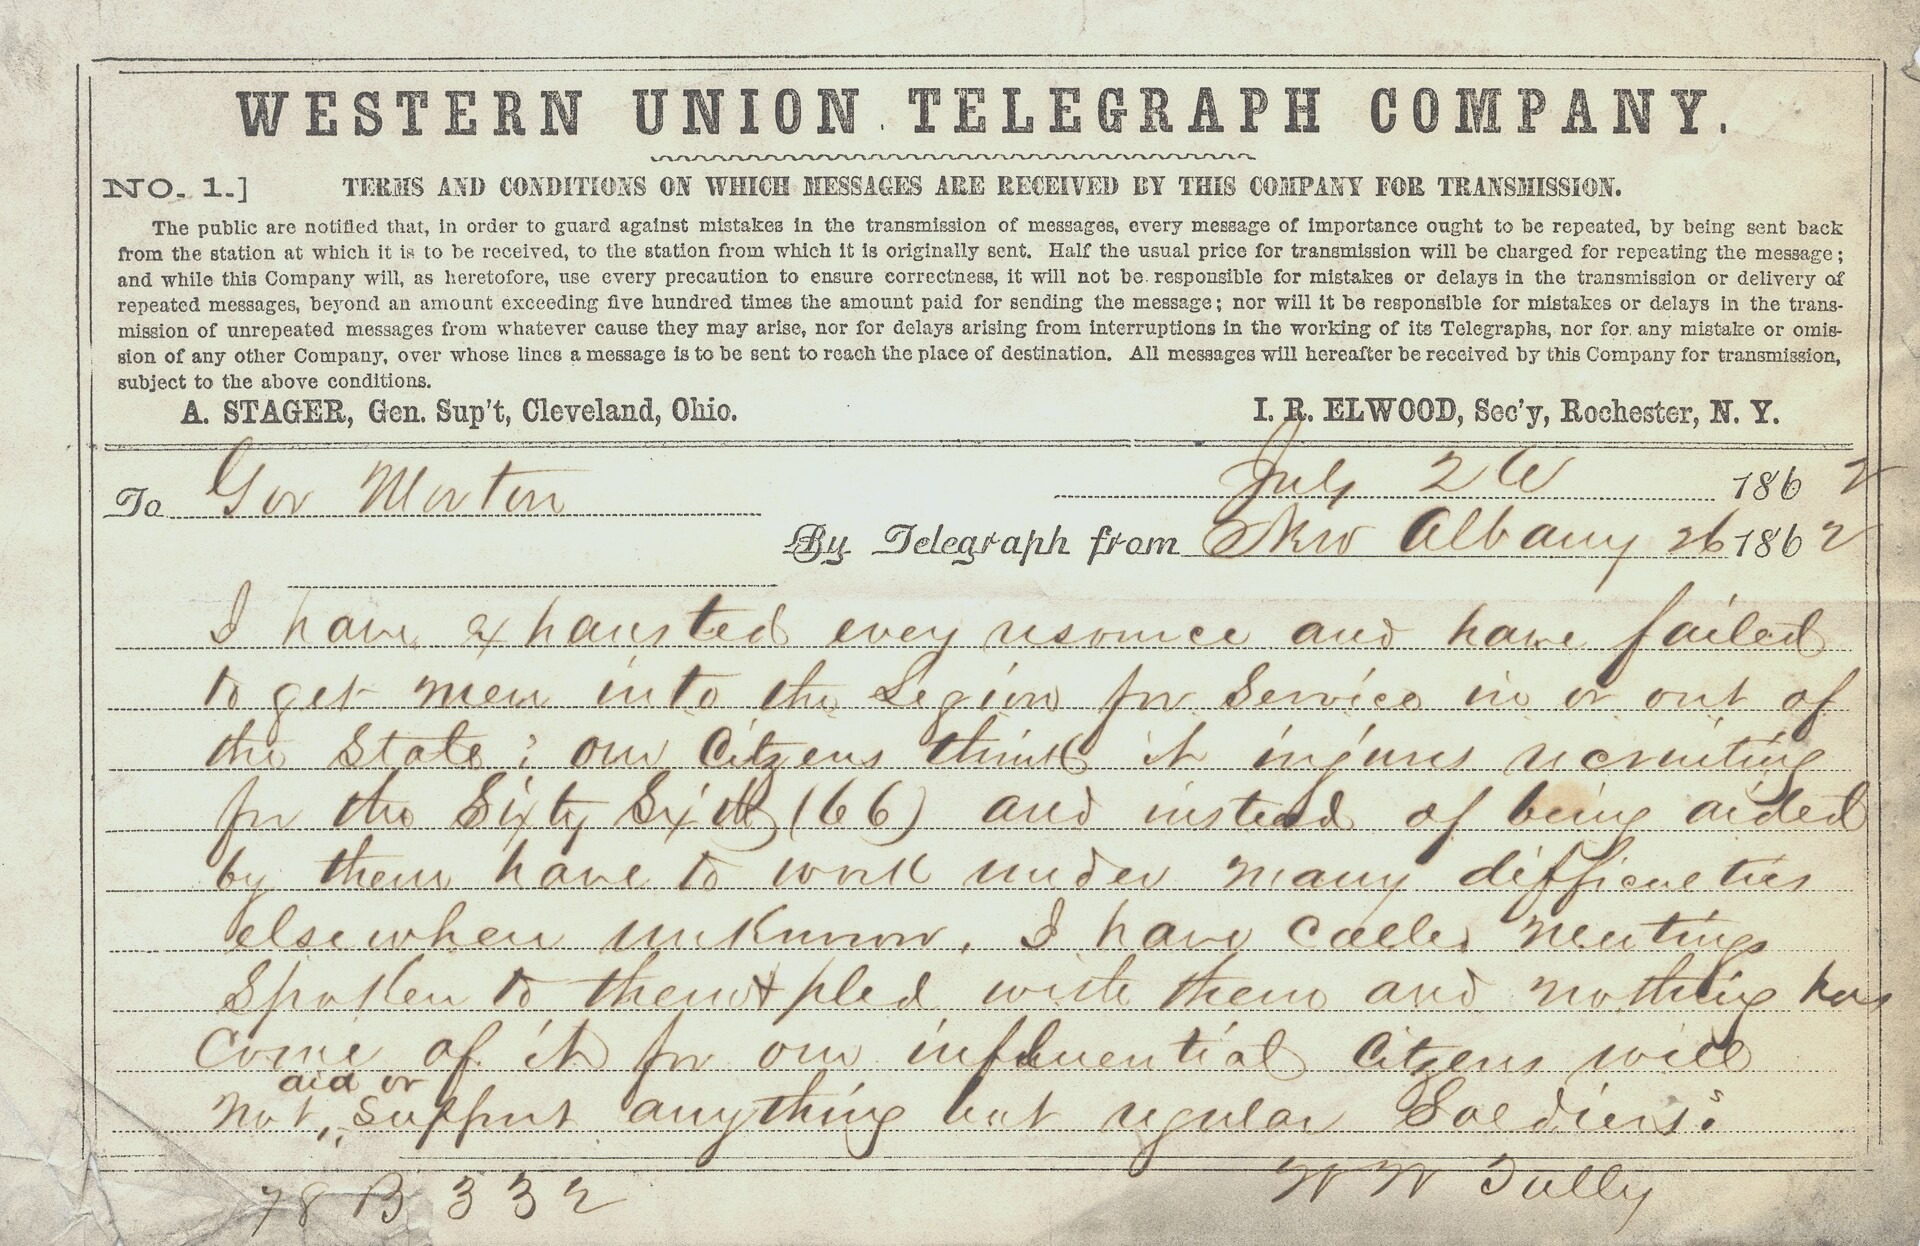 WESTERN UNION TELEGRAPH COMPANY.
NO. 1.] TERMS AND CONDITIONS ON WHICH MESSAGES ARE RECEIVED BY THIS COMPANY FOR TRANSMISSION.
The public are notified that, in order to guard against mistakes in the transmission of messages, every message of importance ought to be repeated, by being sent back
from the station at which it is to be received, to the station from which it is originally sent. Half the usual price for transmission will be charged for repeating the message;
and while this Company will, as heretofore, use every precaution to ensure correctness, it will not be responsible for mistakes or delays in the transmission or delivery of
repeated messages, beyond an amount exceeding five hundred times the amount paid for sending the message; nor will it be responsible for mistakes or delays in the trans-
mission of unrepeated messages from whatever cause they may arise, nor for delays arising from interruptions in the working of its Telegraphs, nor for any mistake or omis-
sion of any other Company, over whose lines a message is to be sent to reach the place of destination. All messages will hereafter be received by this Company for transmission,
subject to the above conditions.
A. STAGER, Gen. Sup't, Cleveland, Ohio. I. R. ELWOOD, Sec'y, Rochester, N. Y.
July 26 1862
To Gov Morton
By Telegraph from New Albany 26 1862
I have exhausted every resource and have failed
to get men into the Legion for Service in or out of
the State; our Citzens think it injures recruiting
for the Sixty Sixth (66) and instead of being aided
by them have to work under many difficulties
elsewhere unknown. I have called meetings
Spoken to them & pled with them and nothing has
Come of it for our influential Citzens will
not, aid or support anything but regular Soldiers:
78 B 332 W W Tully